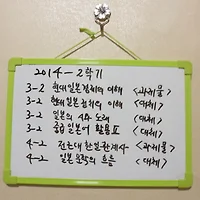 2014-2학기
3-2 현대일본경제의 이해 <과제물>
3-2 현대일본정치의 이해 <대체>
3-2 일본의 사회와 노래 <대체>
3-2 중급일본어 활용Ⅱ <대체>
4-2 전근대 한일관계사 <과제물>
4-2 일본문학의 흐름 <대체>